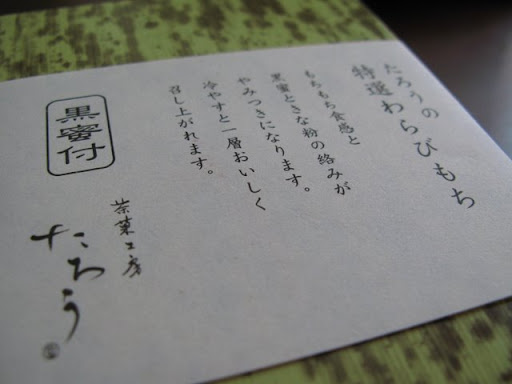 たろうの
特選わらびもち
もちもち食感と
黒蜜ときな粉の絡みが
やみつきになります。
冷やすと一層おいしく
召し上がれます。
黒蜜付
茶菓工房
たろう